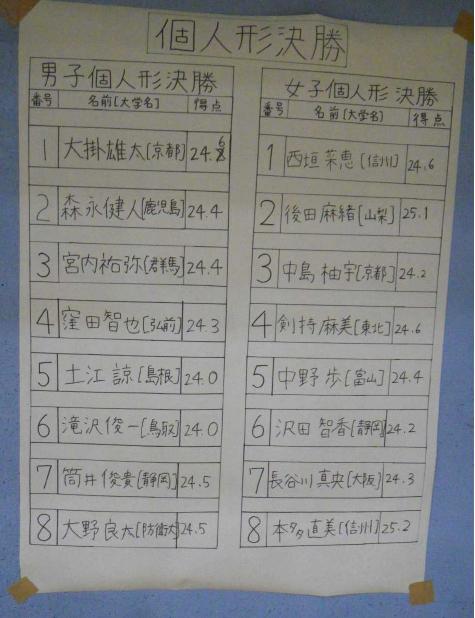 個人形決勝
男子個人形決勝
番号 名前[大学名] 得点
1 大掛雄太[京都] 24.6
2 森永健人[鹿児島] 24.4
3 宮内祐弥[群馬] 24.4
4 窪田智也[弘前] 24.3
5 土江諒[島根] 24.0
6 滝沢俊一[鳥取] 24.0
7 筒井俊貴[静岡] 24.5
8 大野良太[防衛大] 24.5
女子個人形決勝
番号 名前[大学名] 得点
1 西垣菜恵[信州] 24.6
2 後田麻緒[山梨] 25.1
3 中島柚宇[京都] 24.2
4 剣持麻美[東北] 24.6
5 中野歩[富山] 24.4
6 沢田智香[静岡] 24.2
7 長谷川真央[大阪] 24.3
8 本多直美[信州] 25.2